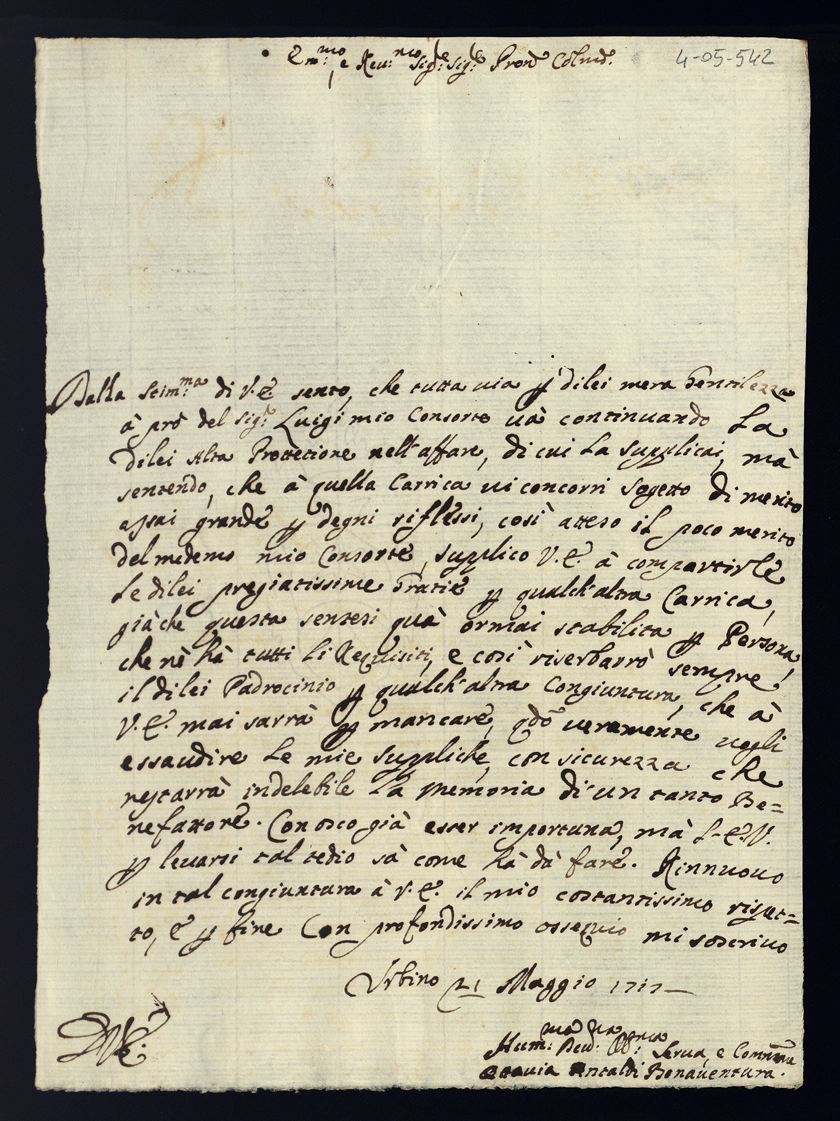 Em:mo, e Reu:mo Sig:e Sig:e Prone Colmo:
4-05-542
Dalla Stim:ma di V.E. sento, che tutta uia p dilei mera Gentilezza
à prò del Sig:r Luigi mio Consorte uà continuando La
dilei Alta Protetione nell'affare, di cui La supplicai, mà
sentendo, che à quella Carrica ui concorri Sogetto di merito
assai grande p degni riflessi, così atteso il poco merito
del medemo mio Consorte, supplico V.E. à compartirle
Le dilei pregiatissime Gratie p qualch'altra Carrica,
già che questa sentesi quà ormai stabilita p Persona,
che nè hà tutti Li Requisiti, e così riserbarrò sempre
il dilei Padrocinio p qualch'altra Congiuntura, che à
V.E. mai sarrà p mancare, qdo ueramente uogli
essaudire Le mie suppliche, con sicurezza che
restarrà indelebile La memoria di un tanto Be=
nefattore. Conosco già esser importuna, mà L'E.V.
p leuarsi tal tedio sà come hà dà fare. Rinnuouo
in tal congiuntura à V.E. il mio costantissimo rispet=
to, e p fine Con profondissimo ossequio mi soscriuo
Urbino 21 Maggio 1717
Hum:ma Deu:ma Obb:ma Serua, e
Ottauia Antaldi Bonauentura.